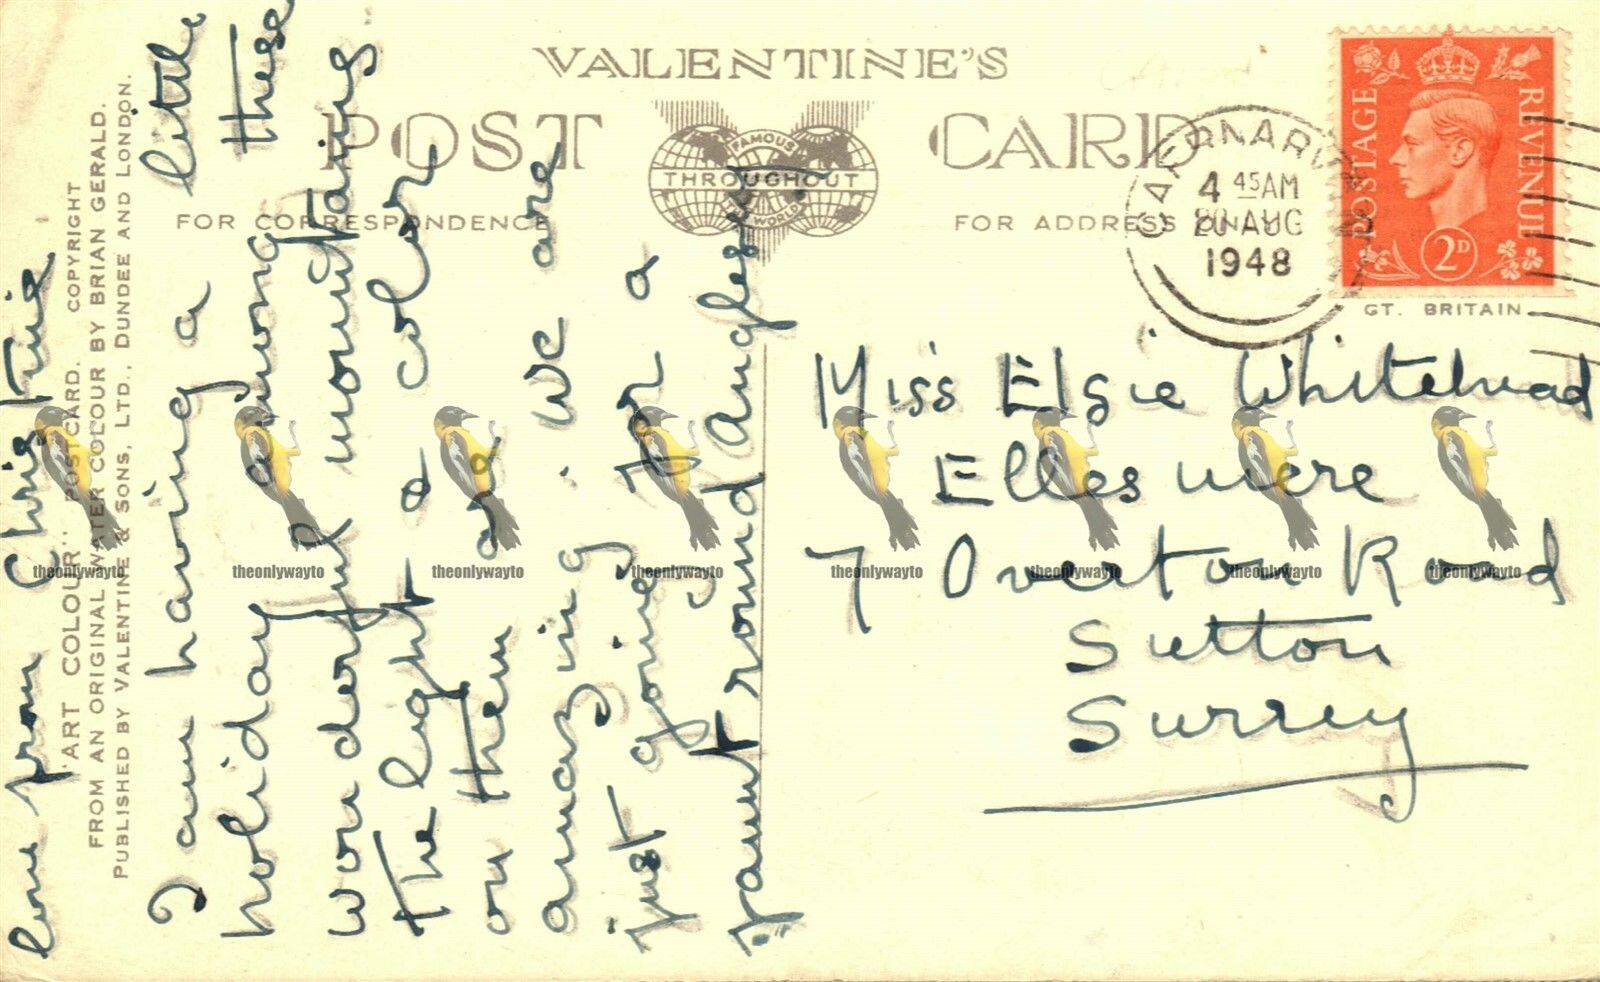 VALENTINE'S
POST CARD
FAMOUS
THROUGHOUT
THE WORLD
FOR CORRESPONDENCE
FOR ADDRESS ONLY
CAERNARVON
4 45AM
20 AUG
1948
POSTAGE REVENUE
2D
GT. BRITAIN
'ART COLOUR' POSTCARD. COPYRIGHT
FROM AN ORIGINAL WATER COLOUR BY BRIAN GERALD.
PUBLISHED BY VALENTINE & SONS, LTD., DUNDEE AND LONDON.
I am having a little
holiday among these
wonderful mountains
the light & colors
on them are
amazing. We are
just going for a
jaunt round Anglesey
love from Christine
Miss Elsie Whitehead
Ellesmere
7 Overton Road
Sutton
Surrey
theonlywayto theonlywayto theonlywayto theonlywayto theonlywayto theonlywayto theonlywayto theonlywayto